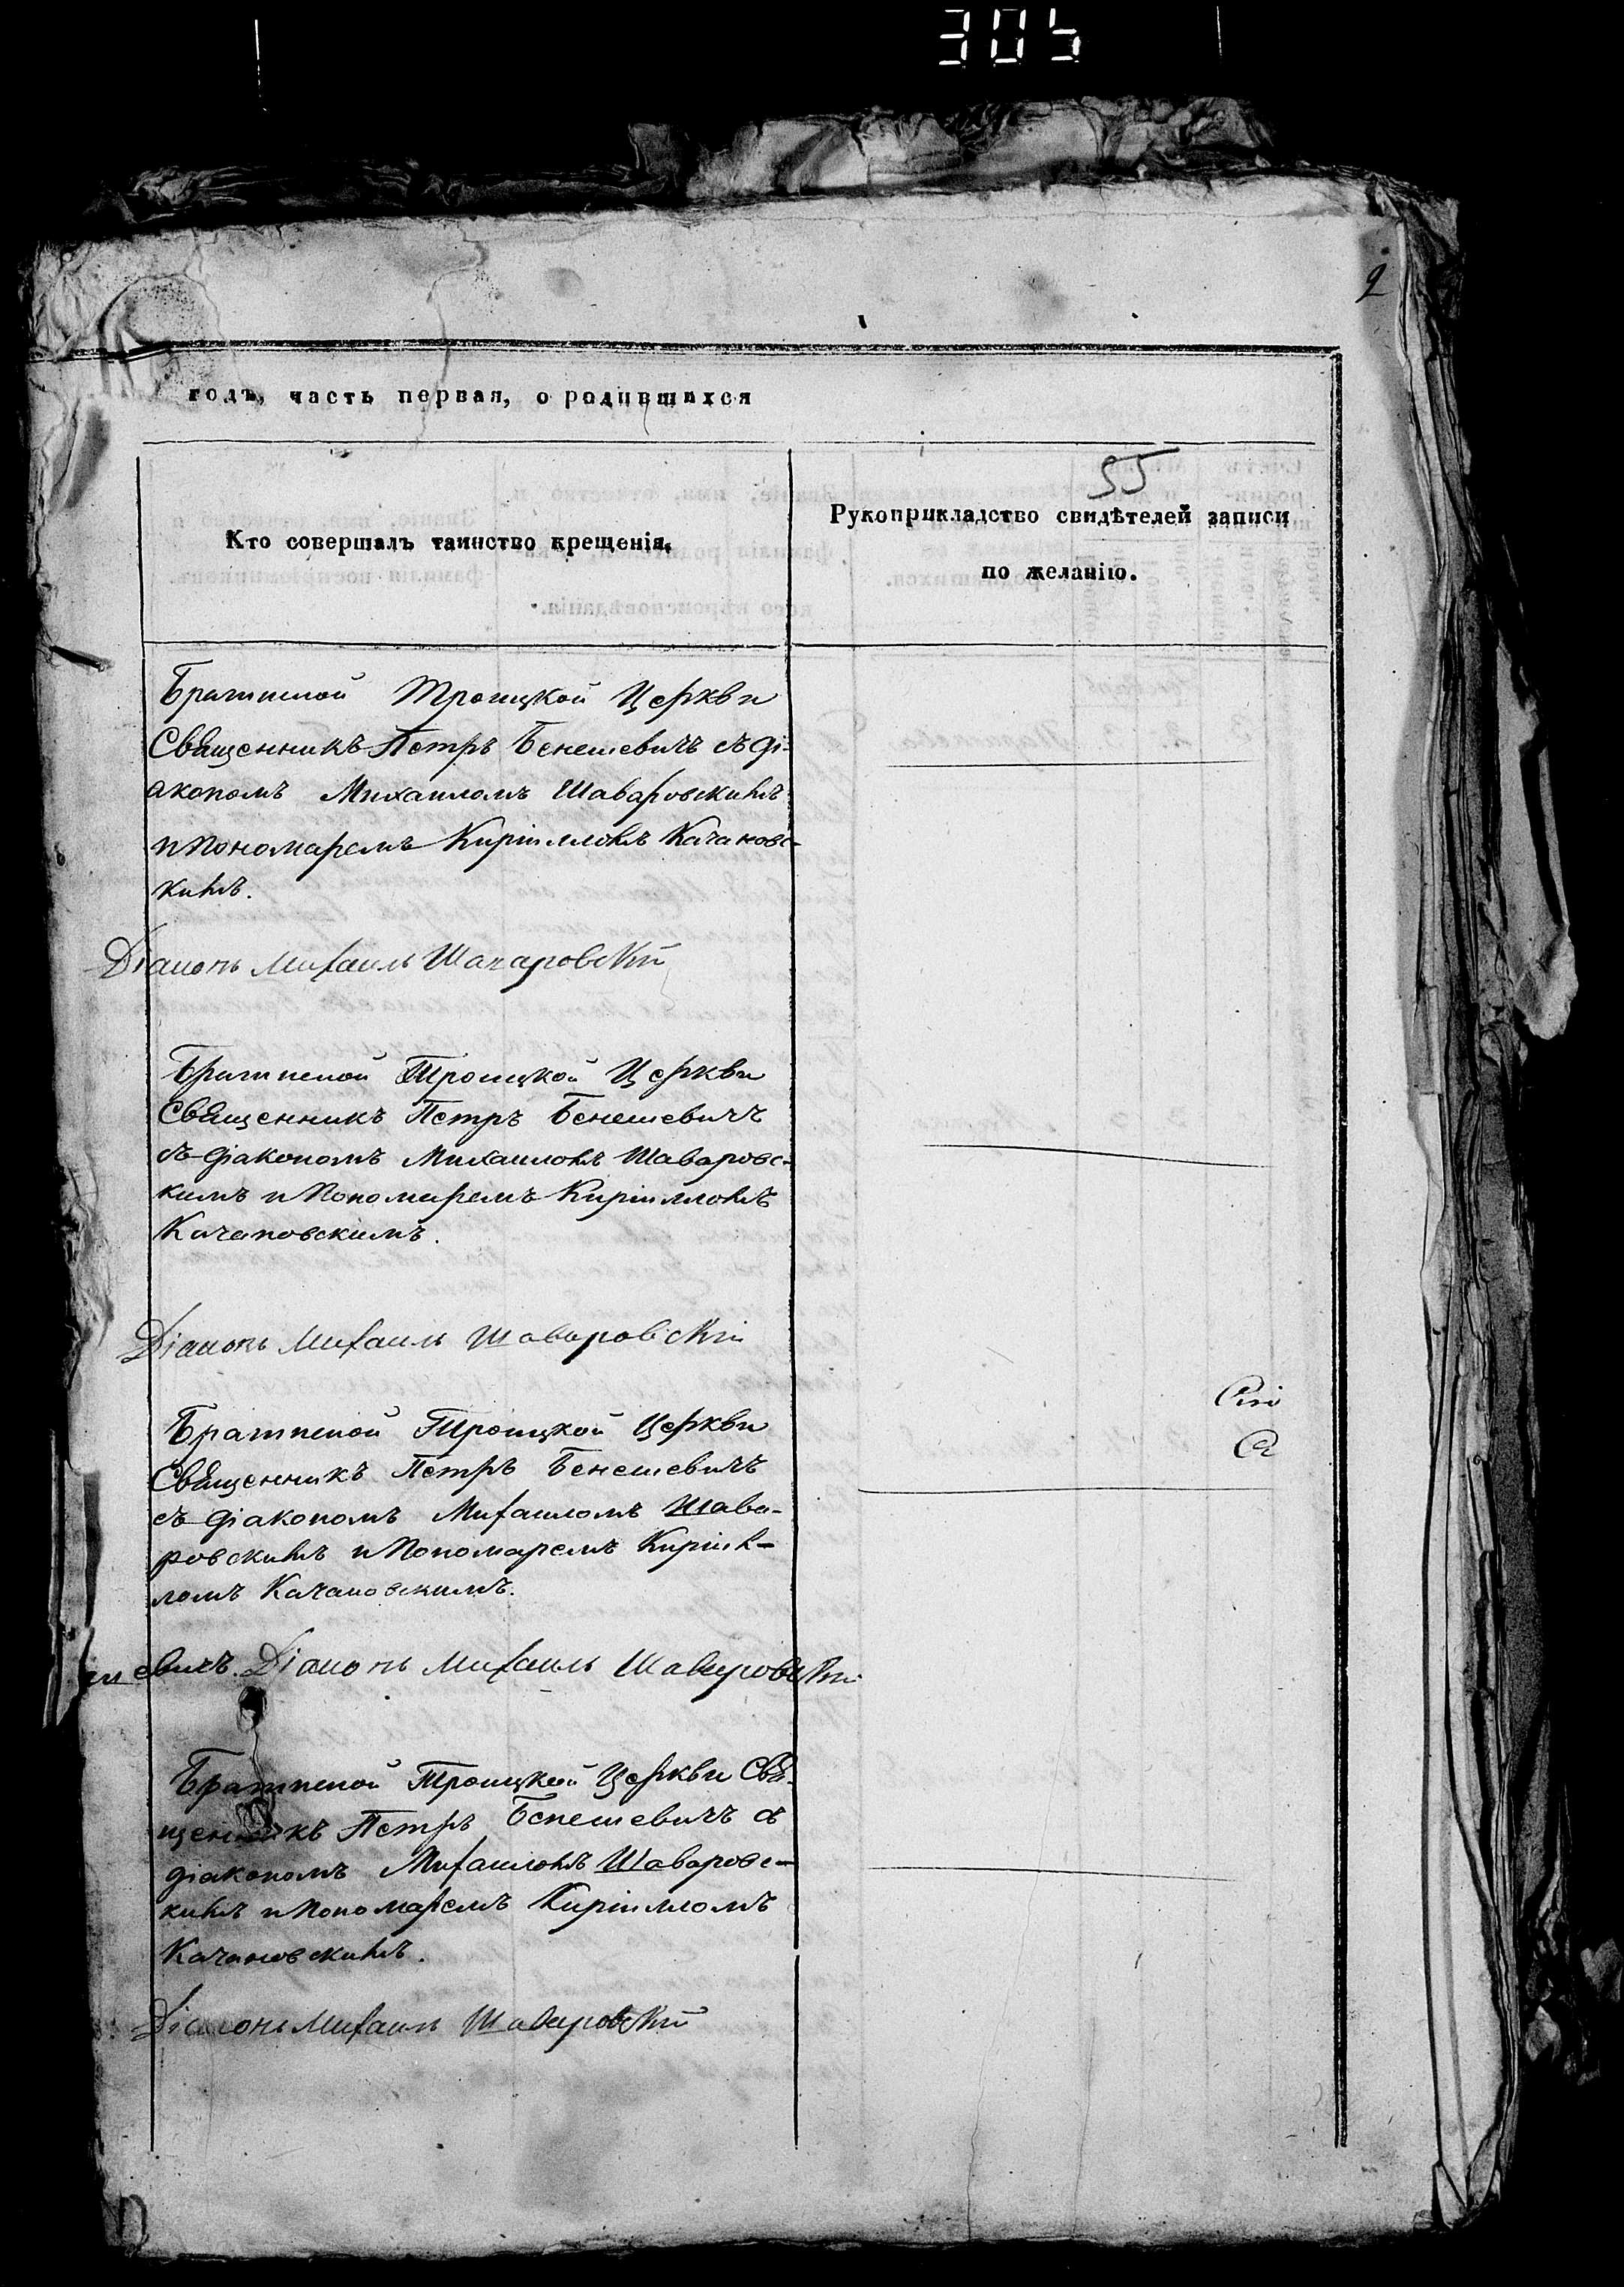 305
2
годъ, часть первая, о родившихся
55
Кто совершалъ таинство крещенія.
Рукоприкладство свидѣтелей записи
по желанію.
Братской Троицкой Церкви
Священникъ Петръ Бенешевичъ съ ді-
акономъ Михаиломъ Шаваровскимъ
и Пономаремъ Кирилломъ Качановс-
кимъ.
Діаконъ Михаилъ Шаваровскій
Братской Троицкой Церкви
Священникъ Петръ Бенешевичъ
съ діакономъ Михаиломъ Шаваровс-
кимъ и Пономаремъ Кирилломъ
Качановскимъ.
Діаконъ Михаилъ Шаваровскій
Братской Троицкой Церкви
Священникъ Петръ Бенешевичъ
съ діакономъ Михаиломъ Шава-
ровскимъ и Пономаремъ Кирил-
ломъ Качановскимъ.
евичъ. Діаконъ Михаилъ Шаваровскій
Братской Троицкой Церкви Свя-
щенникъ Петръ Бенешевичъ съ
діакономъ Михаиломъ Шаваровс-
кимъ и Пономаремъ Кирилломъ
Качановскимъ.
Діаконъ Михаилъ Шаваровскій